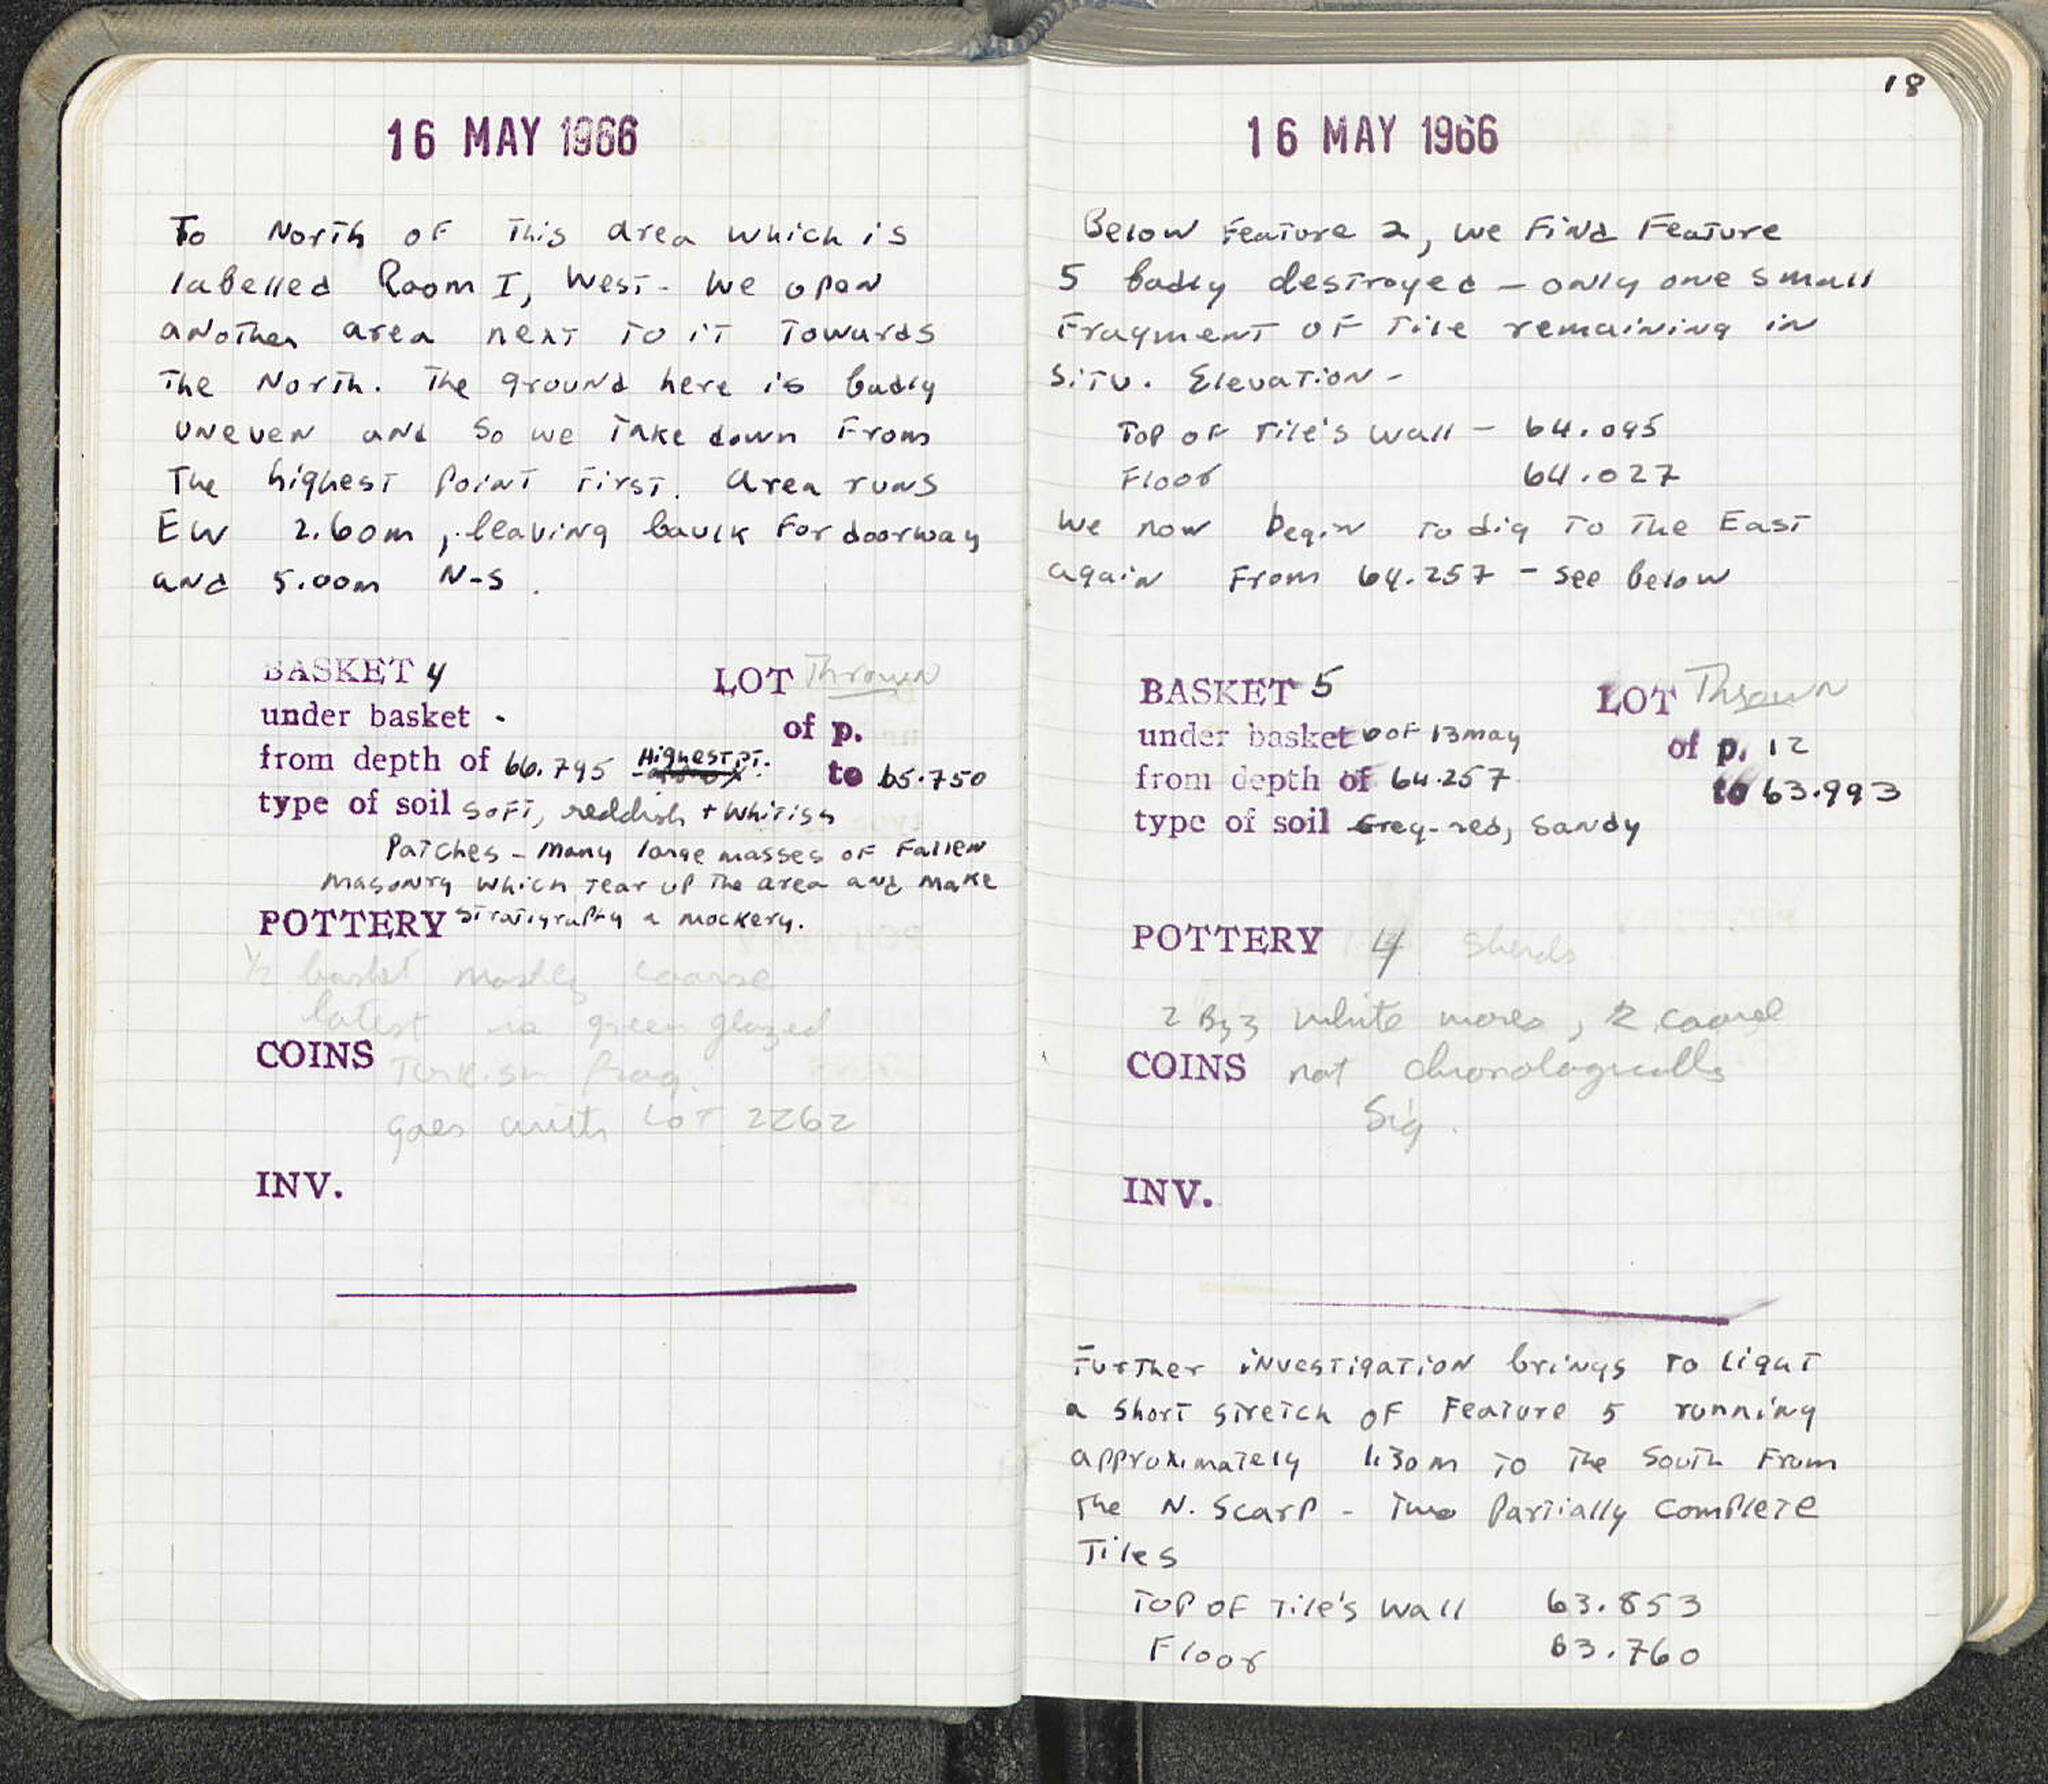 16 MAY 1966
To North of this area which is
labelled Room I, West - We open
another area next to it towards
the North. The ground here is badly
uneven and so we take down from
the highest point first. Area runs
EW 2.60m, leaving baulk for doorway
and 5.00m N-S.
BASKET 4 LOT Thrown
under basket - of p.
from depth of 66.795 Highest pt. to 65.750
type of soil soft, reddish + whitish
patches - many large masses of fallen
masonry which tear up the area and make
stratigraphy a mockery.
POTTERY
1/2 basket mostly coarse
latest is green glazed
COINS
Turkish frag.
goes with LOT 2262
INV.
18
16 MAY 1966
Below Feature 2, we find Feature
5 badly destroyed - only one small
fragment of tile remaining in
situ. Elevation -
Top of tile's wall - 64.095
Floor 64.027
We now begin to dig to the East
again from 64.257 - see below
BASKET 5 LOT Thrown
under basket of 13 may of p. 12
from depth of 64.257 to 63.993
type of soil Grey-red, sandy
POTTERY 4 sherds
2 Byz white wares, 2 coarse
COINS not chronologically
Sig.
INV.
Further investigation brings to light
a short stretch of Feature 5 running
approximately 1.30m to the South from
the N. scarp - Two partially complete
tiles
Top of tile's wall 63.853
Floor 63.760